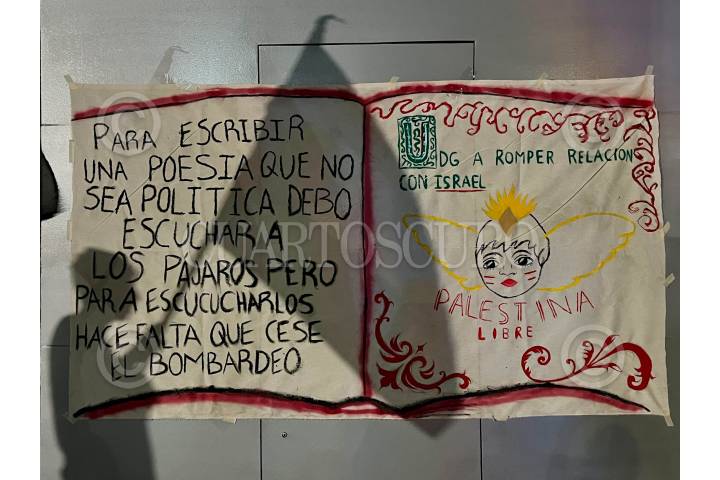 PARA ESCRIBIR
UNA POESIA QUE NO
SEA POLITICA DEBO
ESCUCHAR A
LOS PÁJAROS PERO
PARA ESCUCUCHARLOS
HACE FALTA QUE CESE
EL BOMBARDEO
UDG A ROMPER RELACION
CON ISRAEL
PALESTINA
LIBRE
CUARTOSCURO